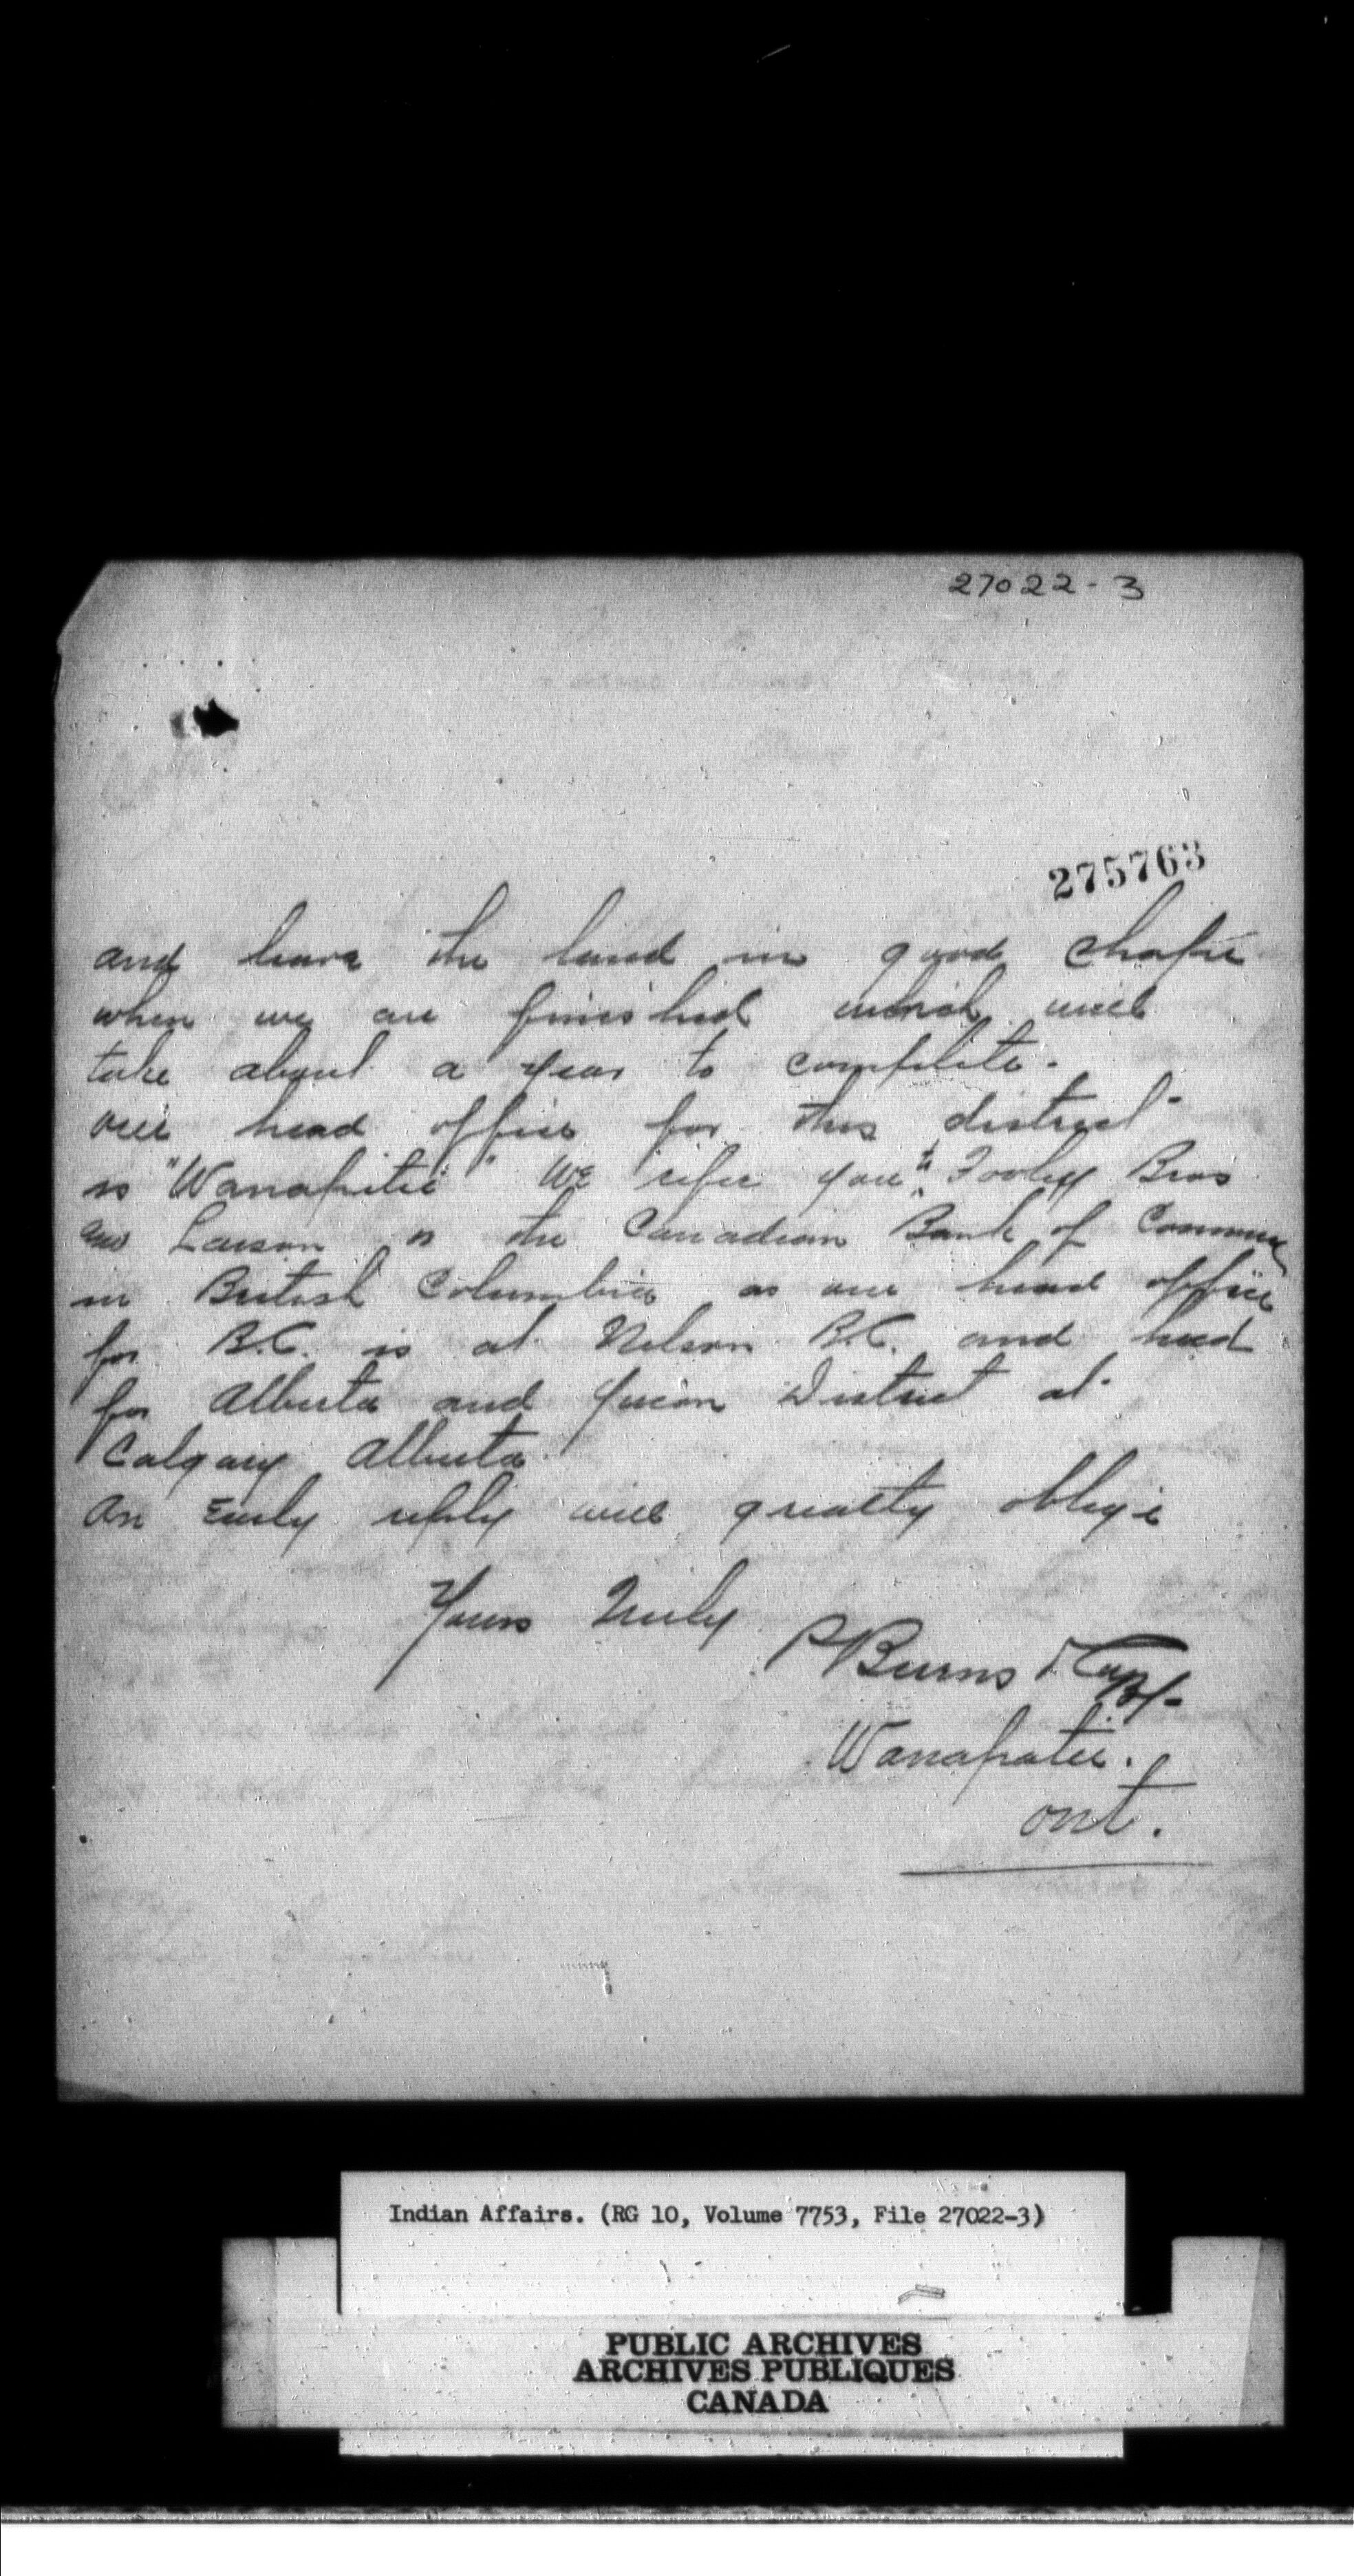 27022-3
275763
and leave the land in good shape
when we are finished which will
take about a year to complete.
our head office for this district
is "Wanapitei" We refer you to Foley Bros
and Larson or the Canadian Bank of Commerce
in British Columbia as our head office
for B.C. is at Nelson B.C. and head
for Alberta and Yucon District at
Calgary Alberta
An Early reply will greatly oblige
Yours Truly
P Burns &
Wanapatei.
ont.
Indian Affairs. (RG 10, Volume 7753, File 27022-3)
PUBLIC ARCHIVES
ARCHIVES PUBLIQUES
CANADA